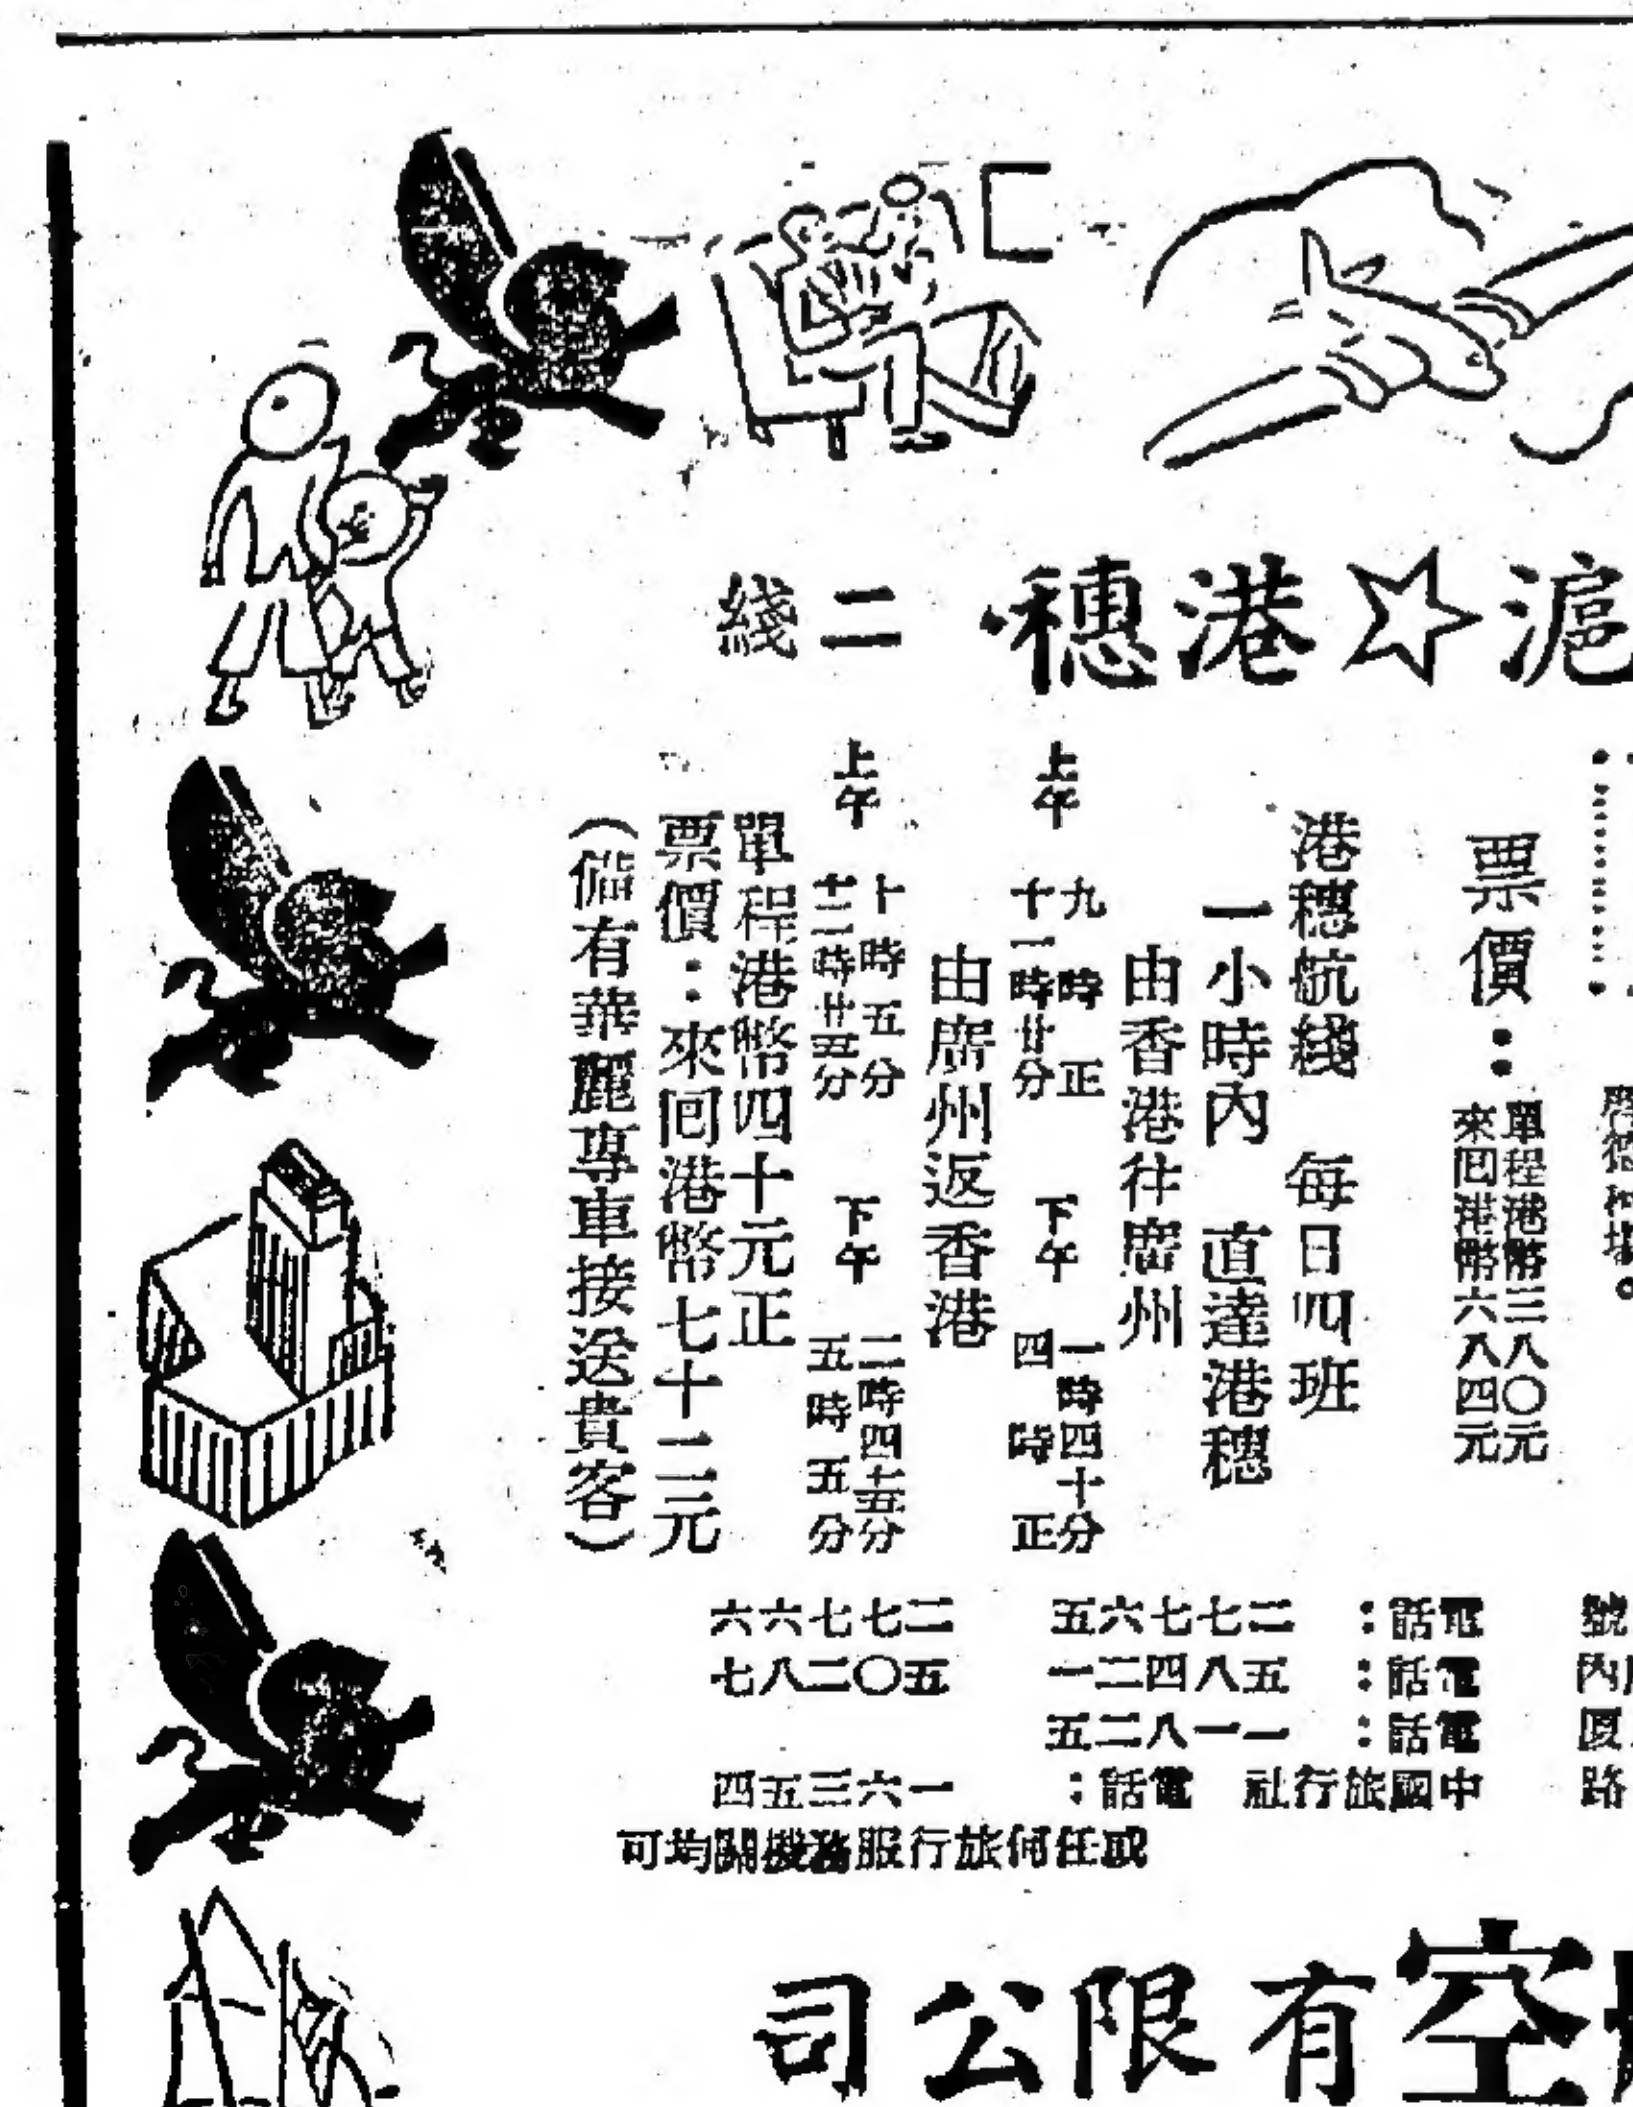 滬☆港穗 二綫
票價：
單程港幣三八〇元
來回港幣六八四元
港穗航綫 每日四班
一小時內 直達港穗
由香港往廣州
上午 九時正 下午 一時四十分
十一時廿分 四時正
由廣州返香港
上午 十時五分 下午 二時四十五分
十二時廿五分 五時五分
單程港幣四十元正
票價：來回港幣七十二元
（備有華麗專車接送貴客）
號 電話：二七七六五 二七七六六
內 電話：五八四二一 五〇二八七
厦 電話：一一八二五
路 中國旅行社 電話：一六三五四
或任何旅行服務機關均可
空有限公司